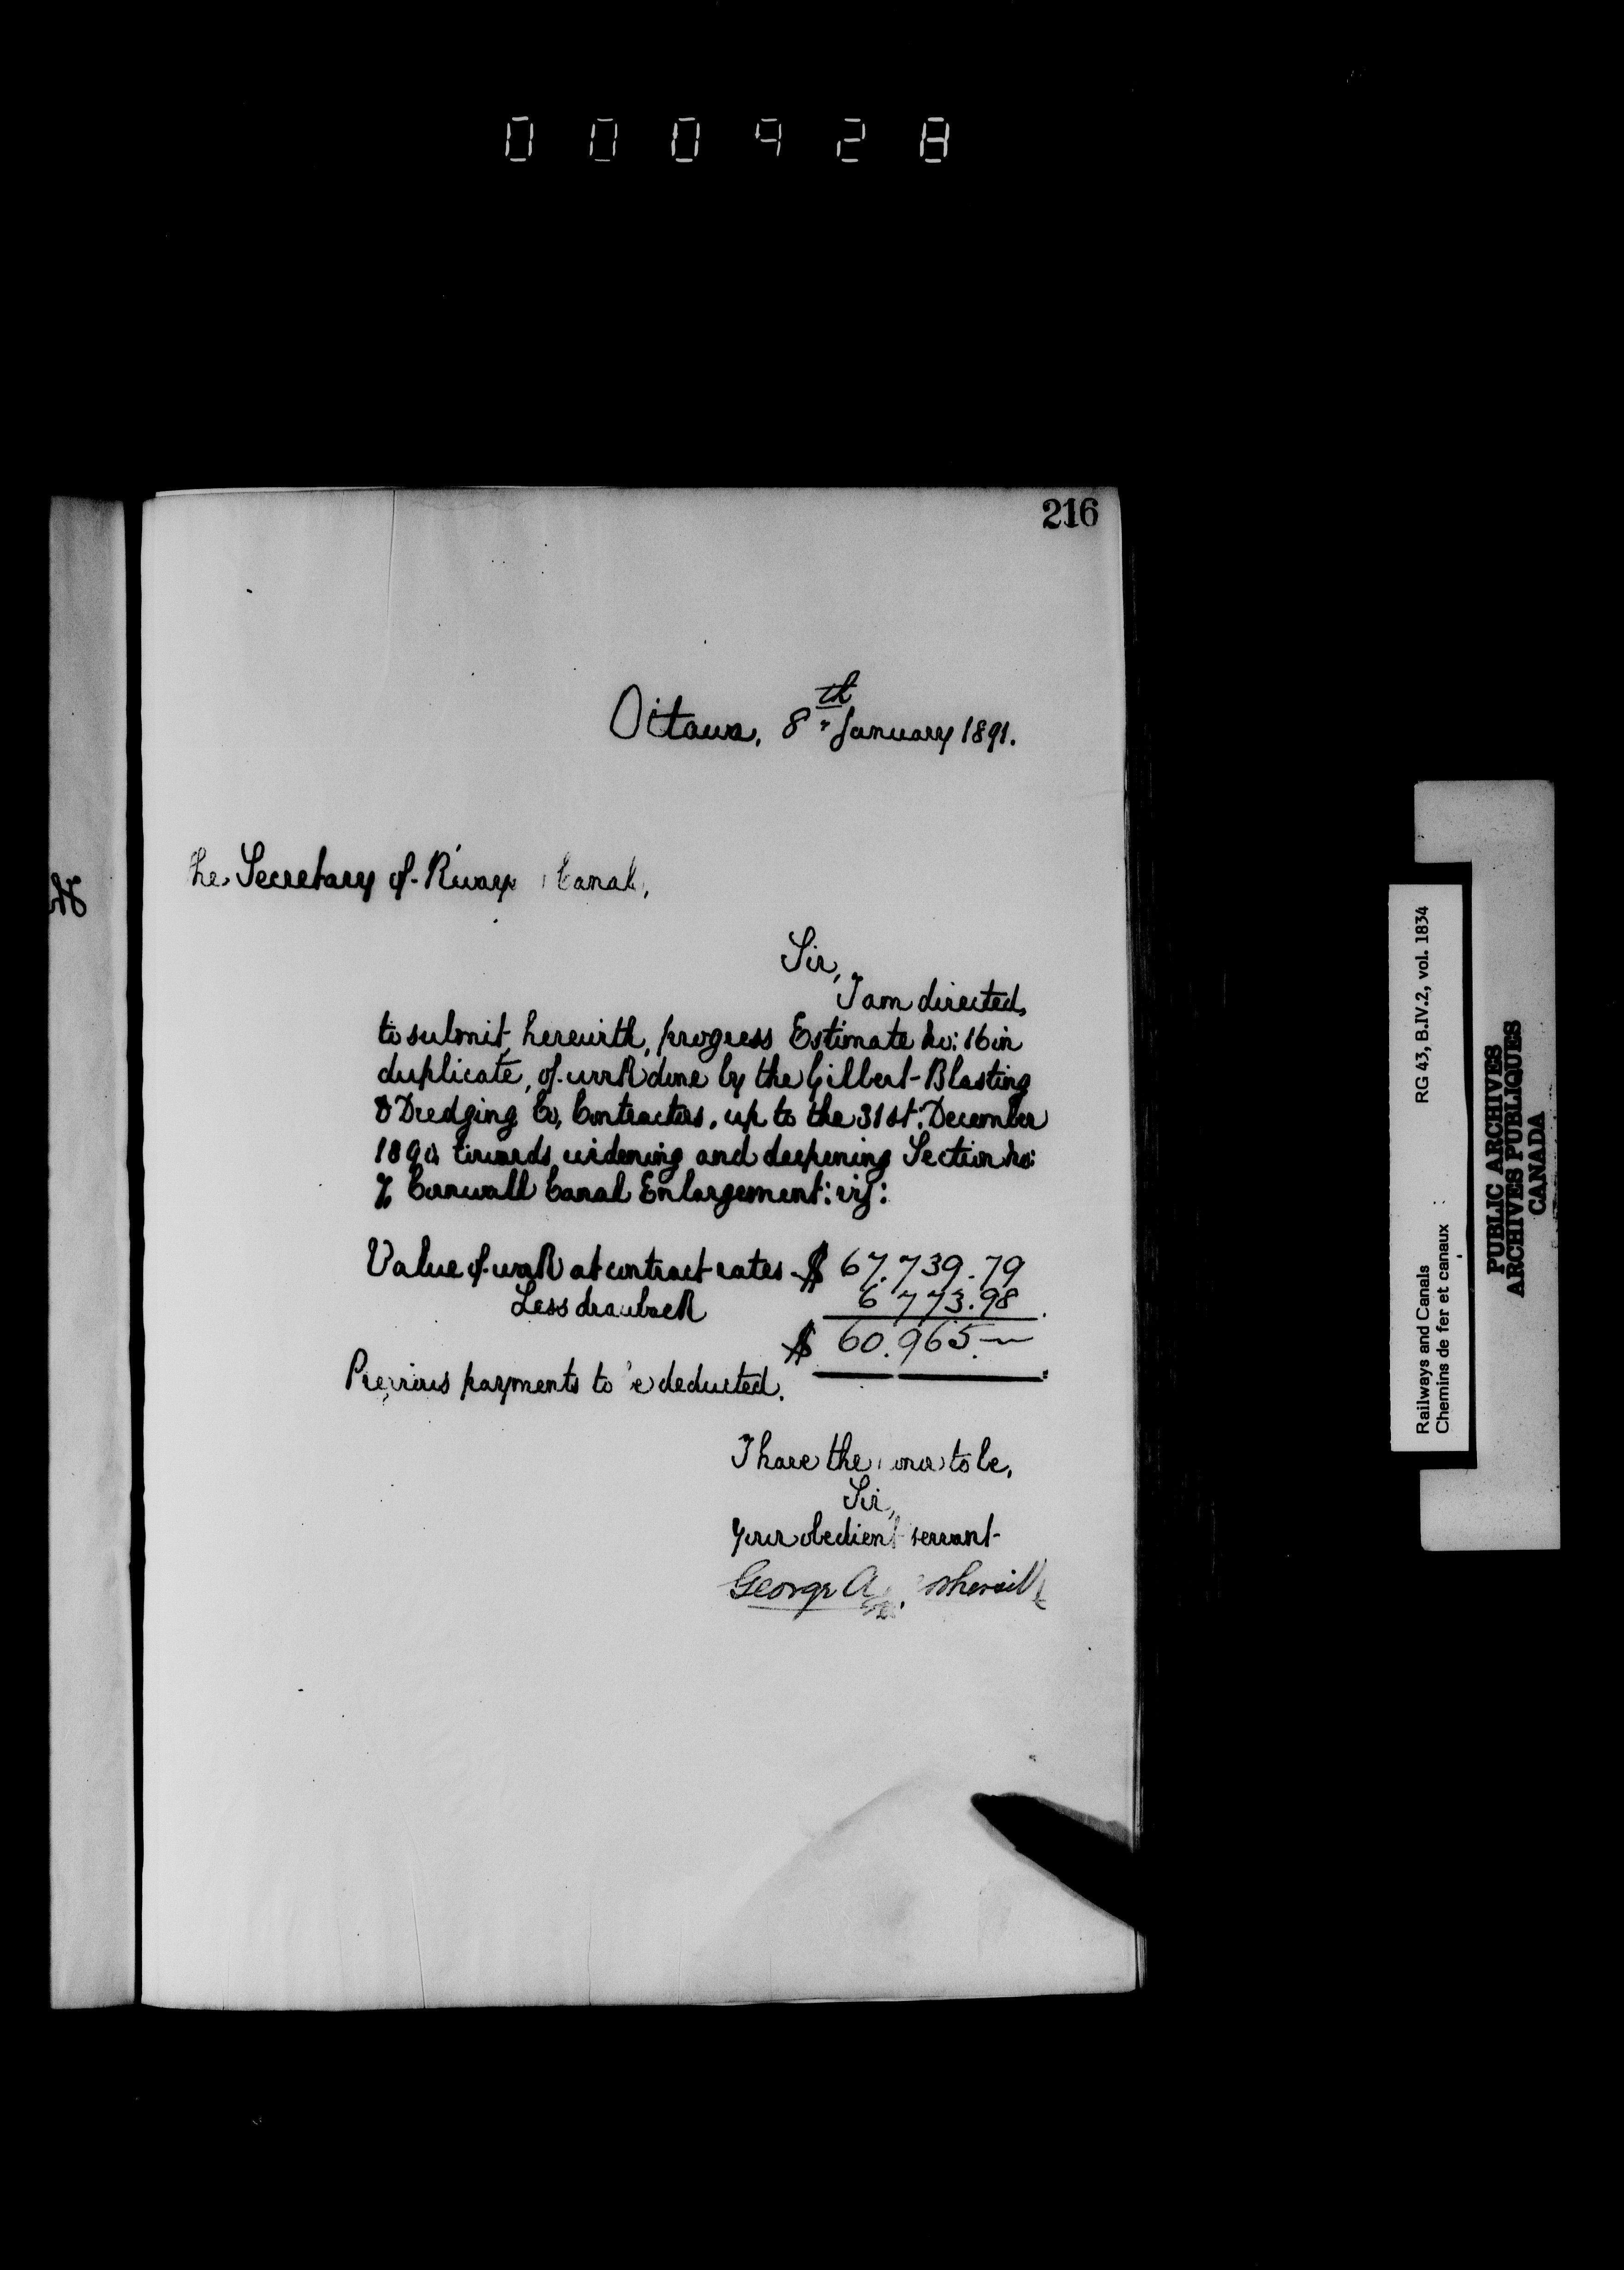 000928
216
Ottawa, 8th January 1891.
he Secretary of R'ways Canals,
Sir,
I am directed,
to submit, herewith, progress Estimate No: 16 in
duplicate, of work done by the Gilbert Blasting
& Dredging Co, Contractors, up to the 31st: December
1890, towards widening and deepening Section No:
Cornwall Canal Enlargement: viz:
Value of work at contract rates $ 67.739.79
Less drawback 6773.98
$ 60.965.—
Previous payments to e deducted.
I have the onor to be,
Sir,
Your obedient servant
George A
RG 43, B.IV.2, vol. 1834
Railways and Canals
Chemins de fer et canaux
PUBLIC ARCHIVES
ARCHIVES PUBLIQUES
CANADA